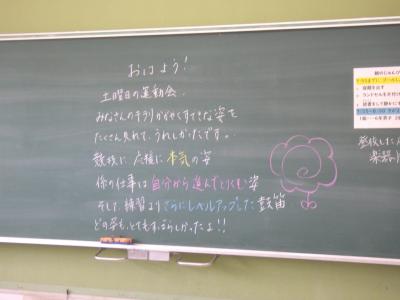 おはよう!
土曜日の運動会。
みなさんのキラリかがやくすてきな姿を
たくさん見れて、うれしかったです。
競技に応援に本気の姿
係の仕事に自分から進んでとりくむ姿
そして、練習よりさらにレベルアップした鼓笛
どの姿も、とてもすばらしかったよ!!
朝のじゅんび